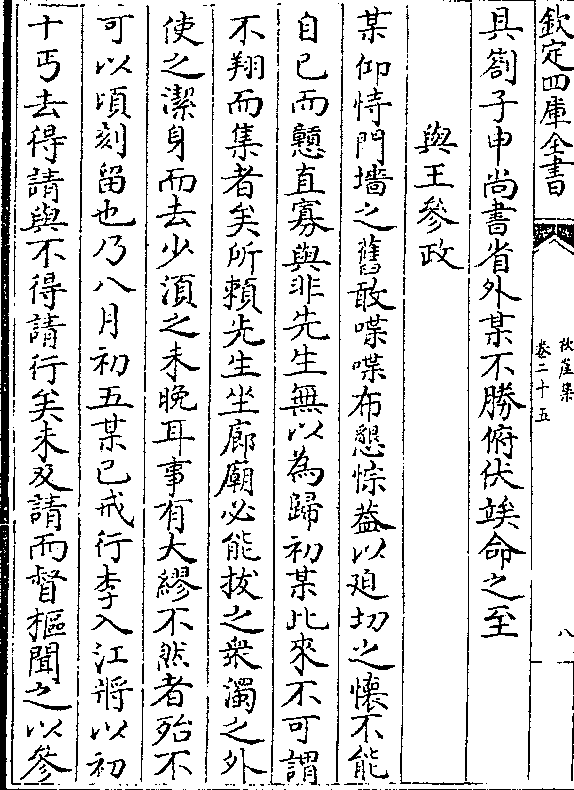 欽定四庫全書
秋崖集
卷二十五
八
具劄子申尚書省外某不勝俯伏竢命之至
與王參政
某仰恃門墻之舊敢喋喋布懇悰葢以廹切之懷不能
自已而戇直寡與非先生無以為歸初某此來不可謂
不翔而集者矣所賴先生坐廊廟必能拔之衆濁之外
使之潔身而去少湏之未晚耳事有大繆不然者殆不
可以頃刻留也乃八月初五某已戒行李入江將以初
十丐去得請與不得請行矣未及請而督樞聞之以參